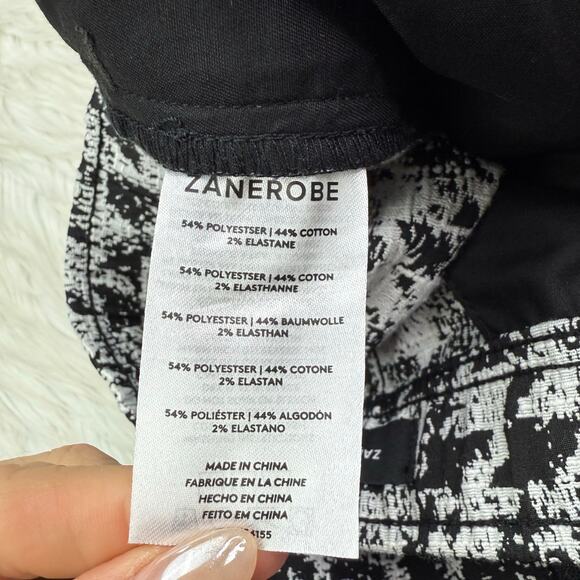 ZANEROBE
54% POLYESTSER | 44% COTTON
2% ELASTANE
54% POLYESTSER | 44% COTON
2% ELASTHANNE
54% POLYESTSER | 44% BAUMWOLLE
2% ELASTHAN
54% POLYESTSER | 44% COTONE
2% ELASTAN
54% POLIÉSTER | 44% ALGODÓN
2% ELASTANO
MADE IN CHINA
FABRIQUE EN LA CHINE
HECHO EN CHINA
FEITO EM CHINA